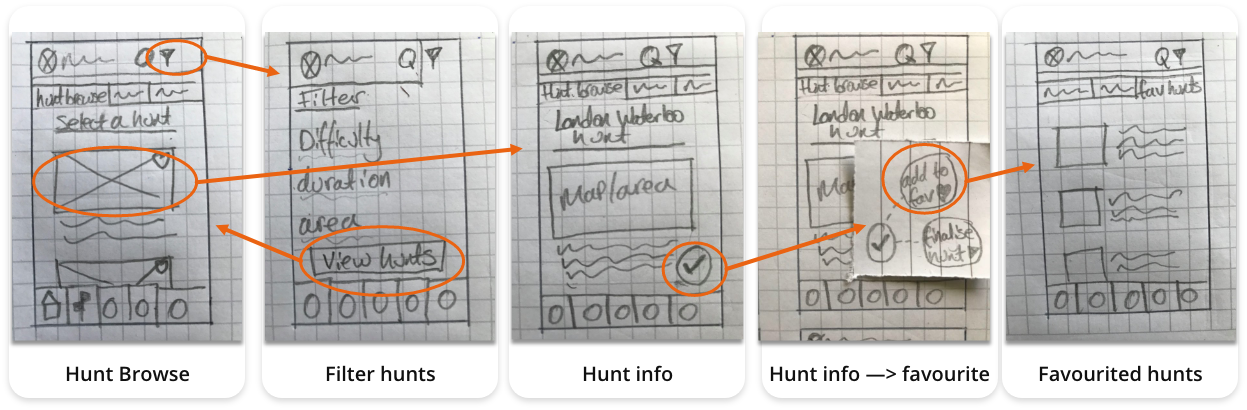 hunt browse
Select a hunt
Hunt Browse
Filter
Difficulty
duration
area
View hunts
Filter hunts
Hunt browse
London Waterloo
hunt
Map/area
Hunt info
Hunt browse
London Waterloo
hunt
Ma
add to
fav
finalise
hunt
Hunt info —> favourite
fav hunts
Favourited hunts